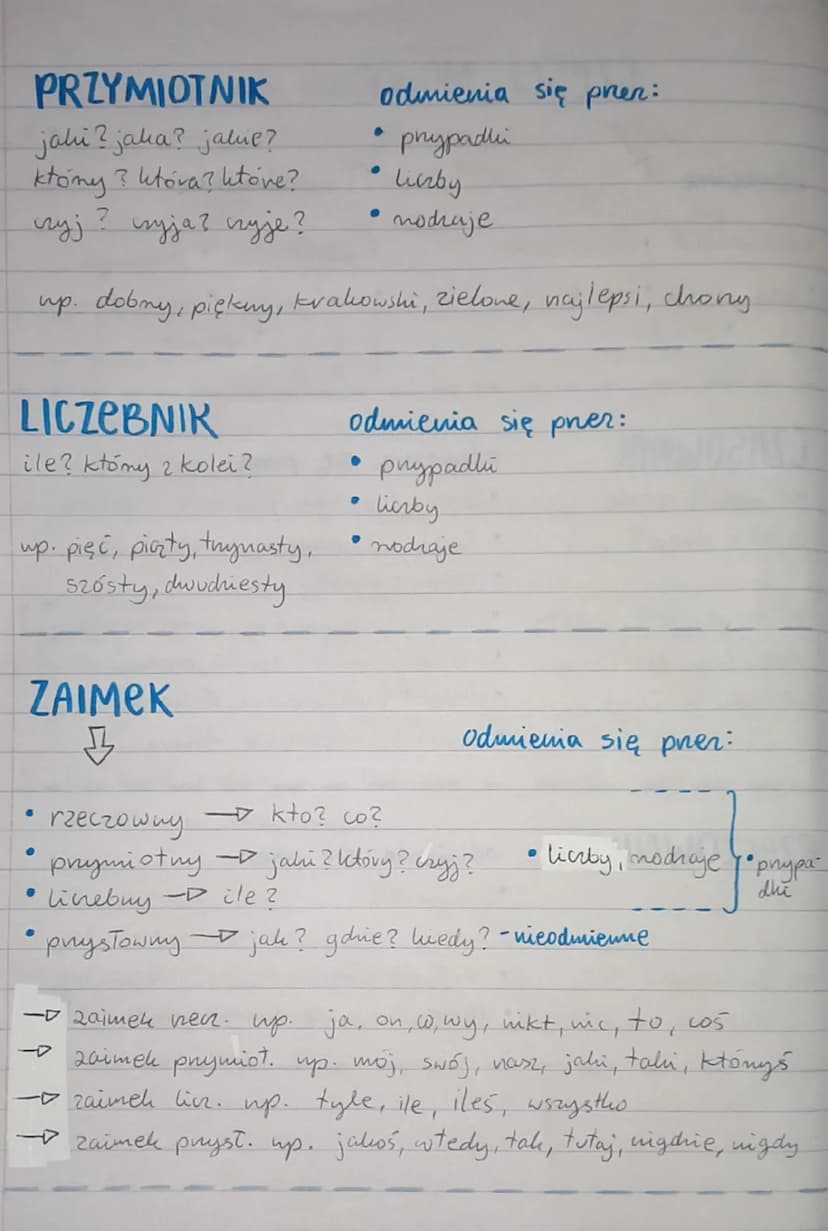 PRZYMIOTNIK
odmienia się przez:
jaki? jaka? jakie?
• przypadki
który? która? które?
• liczby
czyj? czyja? czyje?
• rodzaje
np. dobry, piękny, krakowski, zielone, najlepsi, chory
LICZEBNIK
odmienia się przez:
ile? który z kolei?
• przypadki
• liczby
np. pięć, piąty, trzynasty,
• rodzaje
szósty, dwudziesty
ZAIMEK
odmienia się przez:
• rzeczowny → kto? co?
• przymiotny → jaki? który? czyj?
• liczby, rodzaje
• przypa-
dki
• liczebny → ile?
• przysłowny → jak? gdzie? kiedy? - nieodmienne
→ zaimek rzecz. np. ja, on, co, wy, nikt, nic, to, coś
→ zaimek przymiot. np. mój, swój, nasz, jaki, taki, któryś
→ zaimek licz. np. tyle, ile, ileś, wszystko
→ zaimek przysł. np. jakoś, wtedy, tak, tutaj, nigdzie, nigdy